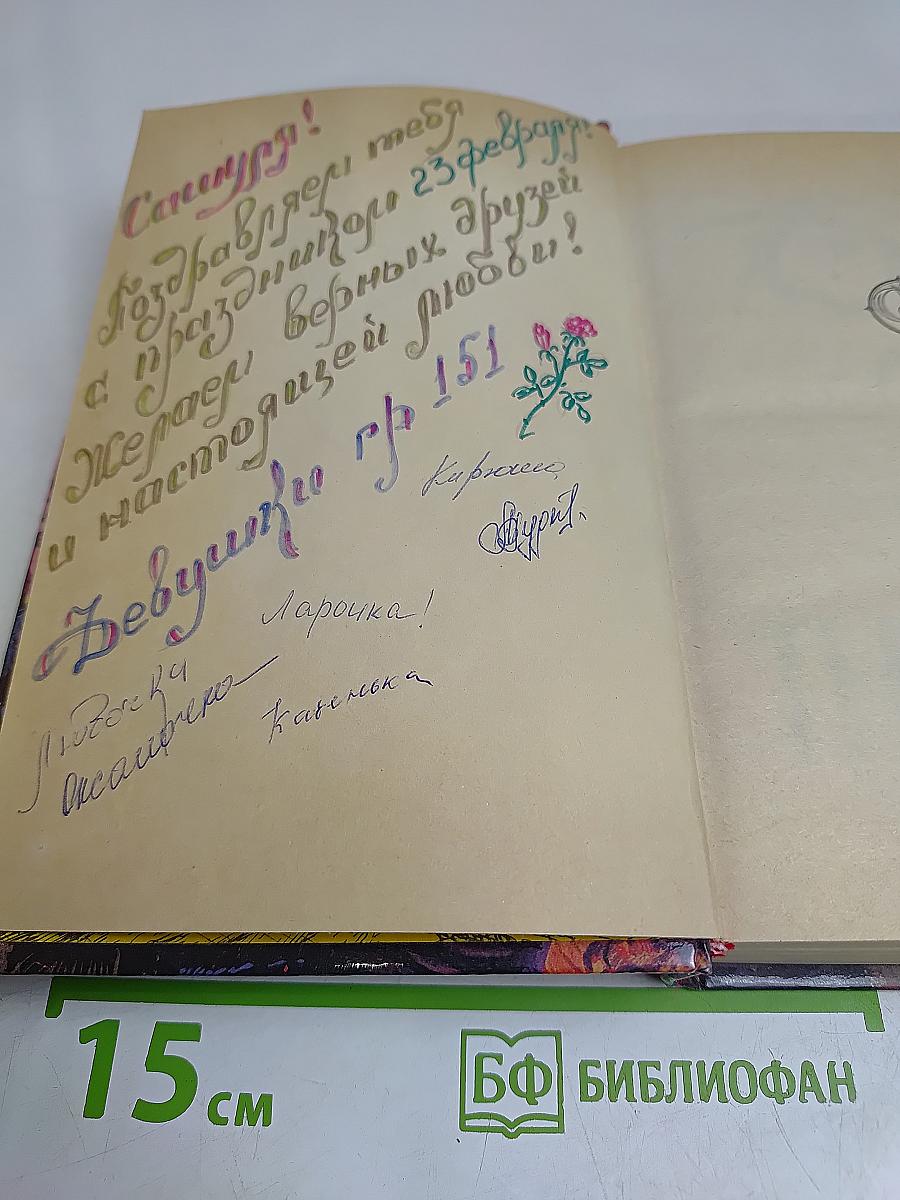 Сашуля!
Поздравляем тебя
с праздником 23 февраля!
Желаем верных друзей
и настоящей любви!
Девушки гр 151
Ларочка!
Любочка
Оксаночка
Катенька
15 см
БФ БИБЛИОФАН